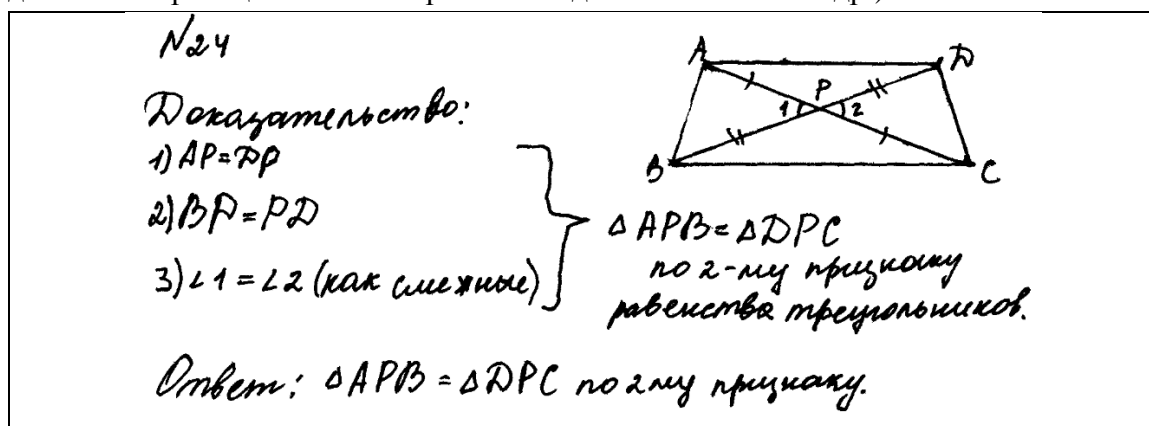 N24
Доказательство:
1) AP=DP
2) BP=PD
3) ∠1=∠2 (как смежные)
△APB=△DPC
по 2-му признаку
равенства треугольников.
Ответ: △APB=△DPC по 2му признаку.
A
D
P
1
2
B
C